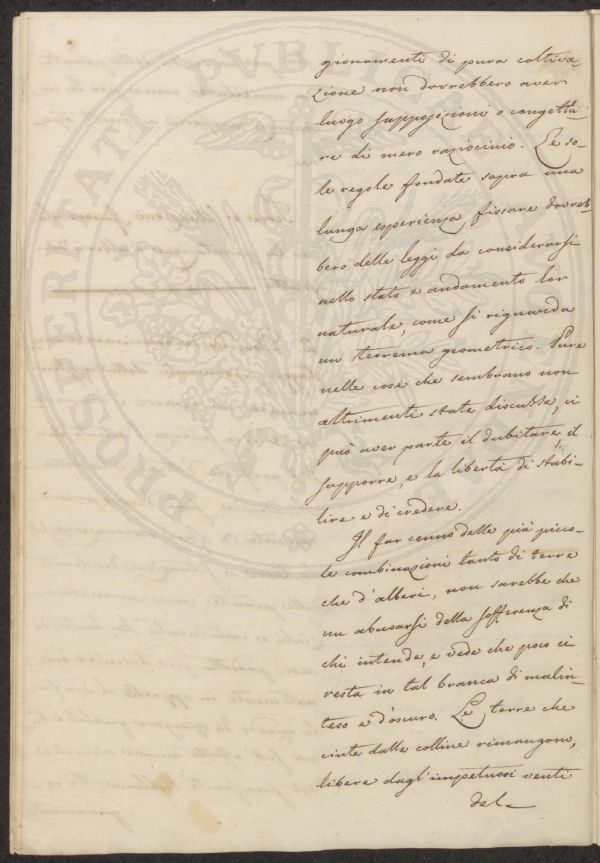 gionamenti di pura coltiva-
zione non dovrebbero aver
luogo supposizioni o congettu-
re di mero raziocinio. Le so-
le regole fondate sopra una
lunga esperienza, fissare dovreb-
bero delle leggi da considerarsi
nello stato e andamento lor
naturale, come si riguarda
un teorema geometrico. Pure
nelle cose che sembrano non
altrimenti state discusse, ci
può aver parte il dubitare, il
supporre, e la libertà di stabi-
lire e di credere.
Il far cenno delle più picco-
le combinazioni tanto di terre
che d'alberi, non sarebbe che
un abusarsi della sofferenza di
chi intende, e vede che poco ci
resta in tal branca di malin-
teso e d'oscuro. Le terre che
cinte dalle colline rimangono,
libere dagl'impetuosi venti
dal-
PROSPERITATI PUBLICAE